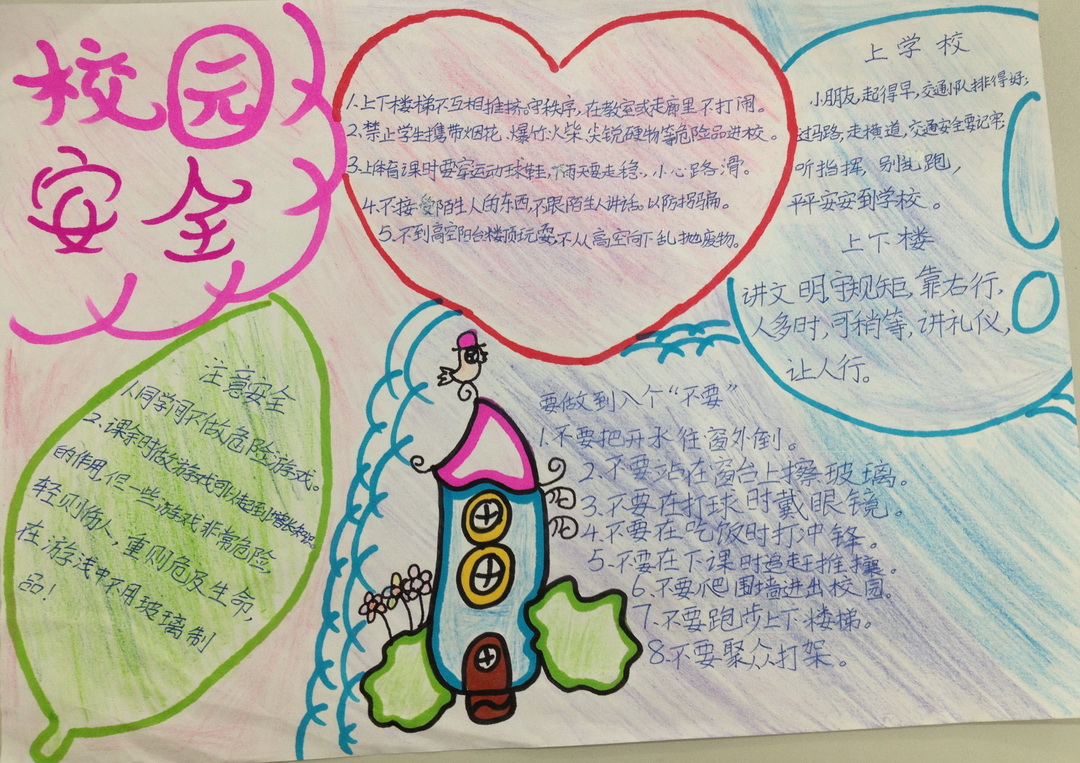 校园
安全
1.上下楼梯不互相推挤。守秩序，在教室或走廊里不打闹。
2.禁止学生携带烟花、爆竹、火柴、尖锐硬物等危险品进校。
3.上体育课时要穿运动球鞋，下雨天要走稳，小心路滑。
4.不接受陌生人的东西，不跟陌生人讲话。以防拐骗。
5.不到高空阳台楼顶玩耍，不从高空间下乱抛废物。
上学校
小朋友，起得早，交通队排得好；
过马路，走横道，交通安全要记牢；
听指挥，别乱跑，
平平安安到学校。
上下楼
讲文明，守规矩，靠右行，
人多时，可稍等，讲礼仪，
让人行。
注意安全
1.同学间不做危险游戏。
2.课余时做游戏可以起到增长知识
的作用，但一些游戏非常危险
轻则伤人，重则危及生命，
在游戏中不用玻璃制
品！
要做到八个“不要”
1.不要把开水往窗外倒。
2.不要站在窗台上擦玻璃。
3.不要在打球时戴眼镜。
4.不要在吃饭时打冲锋。
5.不要在下课时追赶推攘。
6.不要爬围墙进出校园。
7.不要跑步上下楼梯。
8.不要聚众打架。